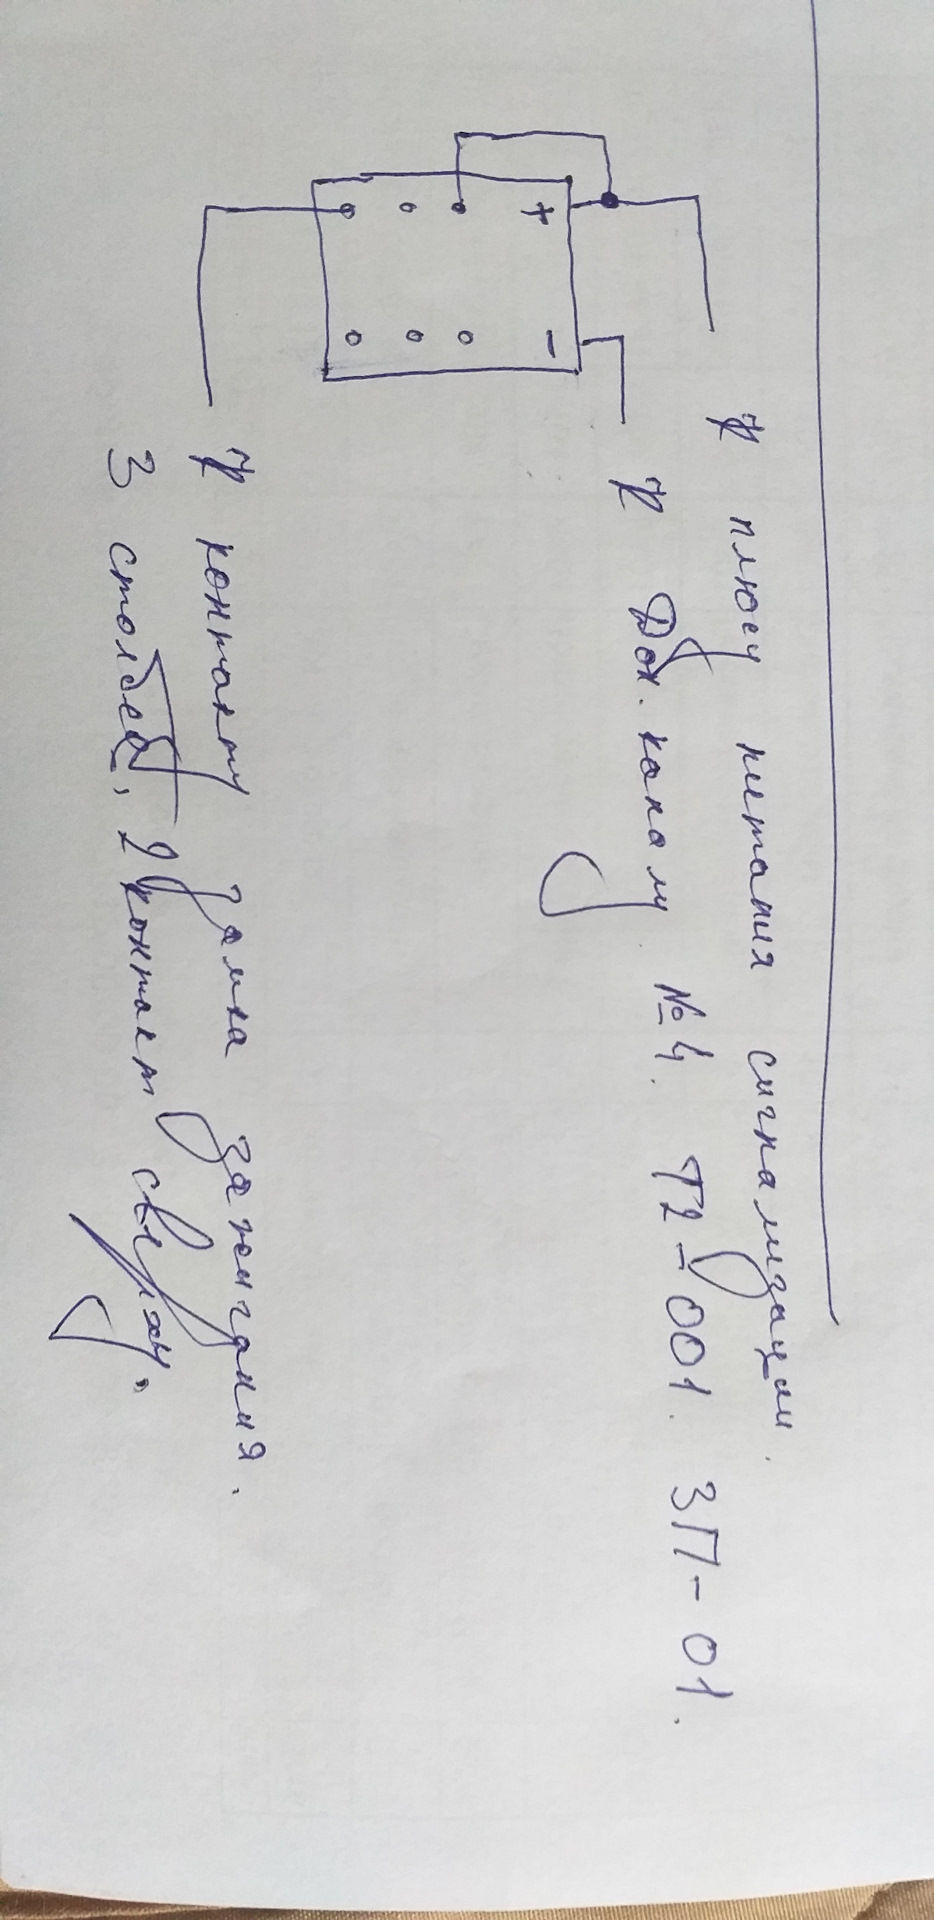 К плюсу питания сигнализации.
+ -
К Доп. каналу №4. T2-001. ЗП-01.
К контакту замка зажигания.
3 столбец, 2 контакт сверху.